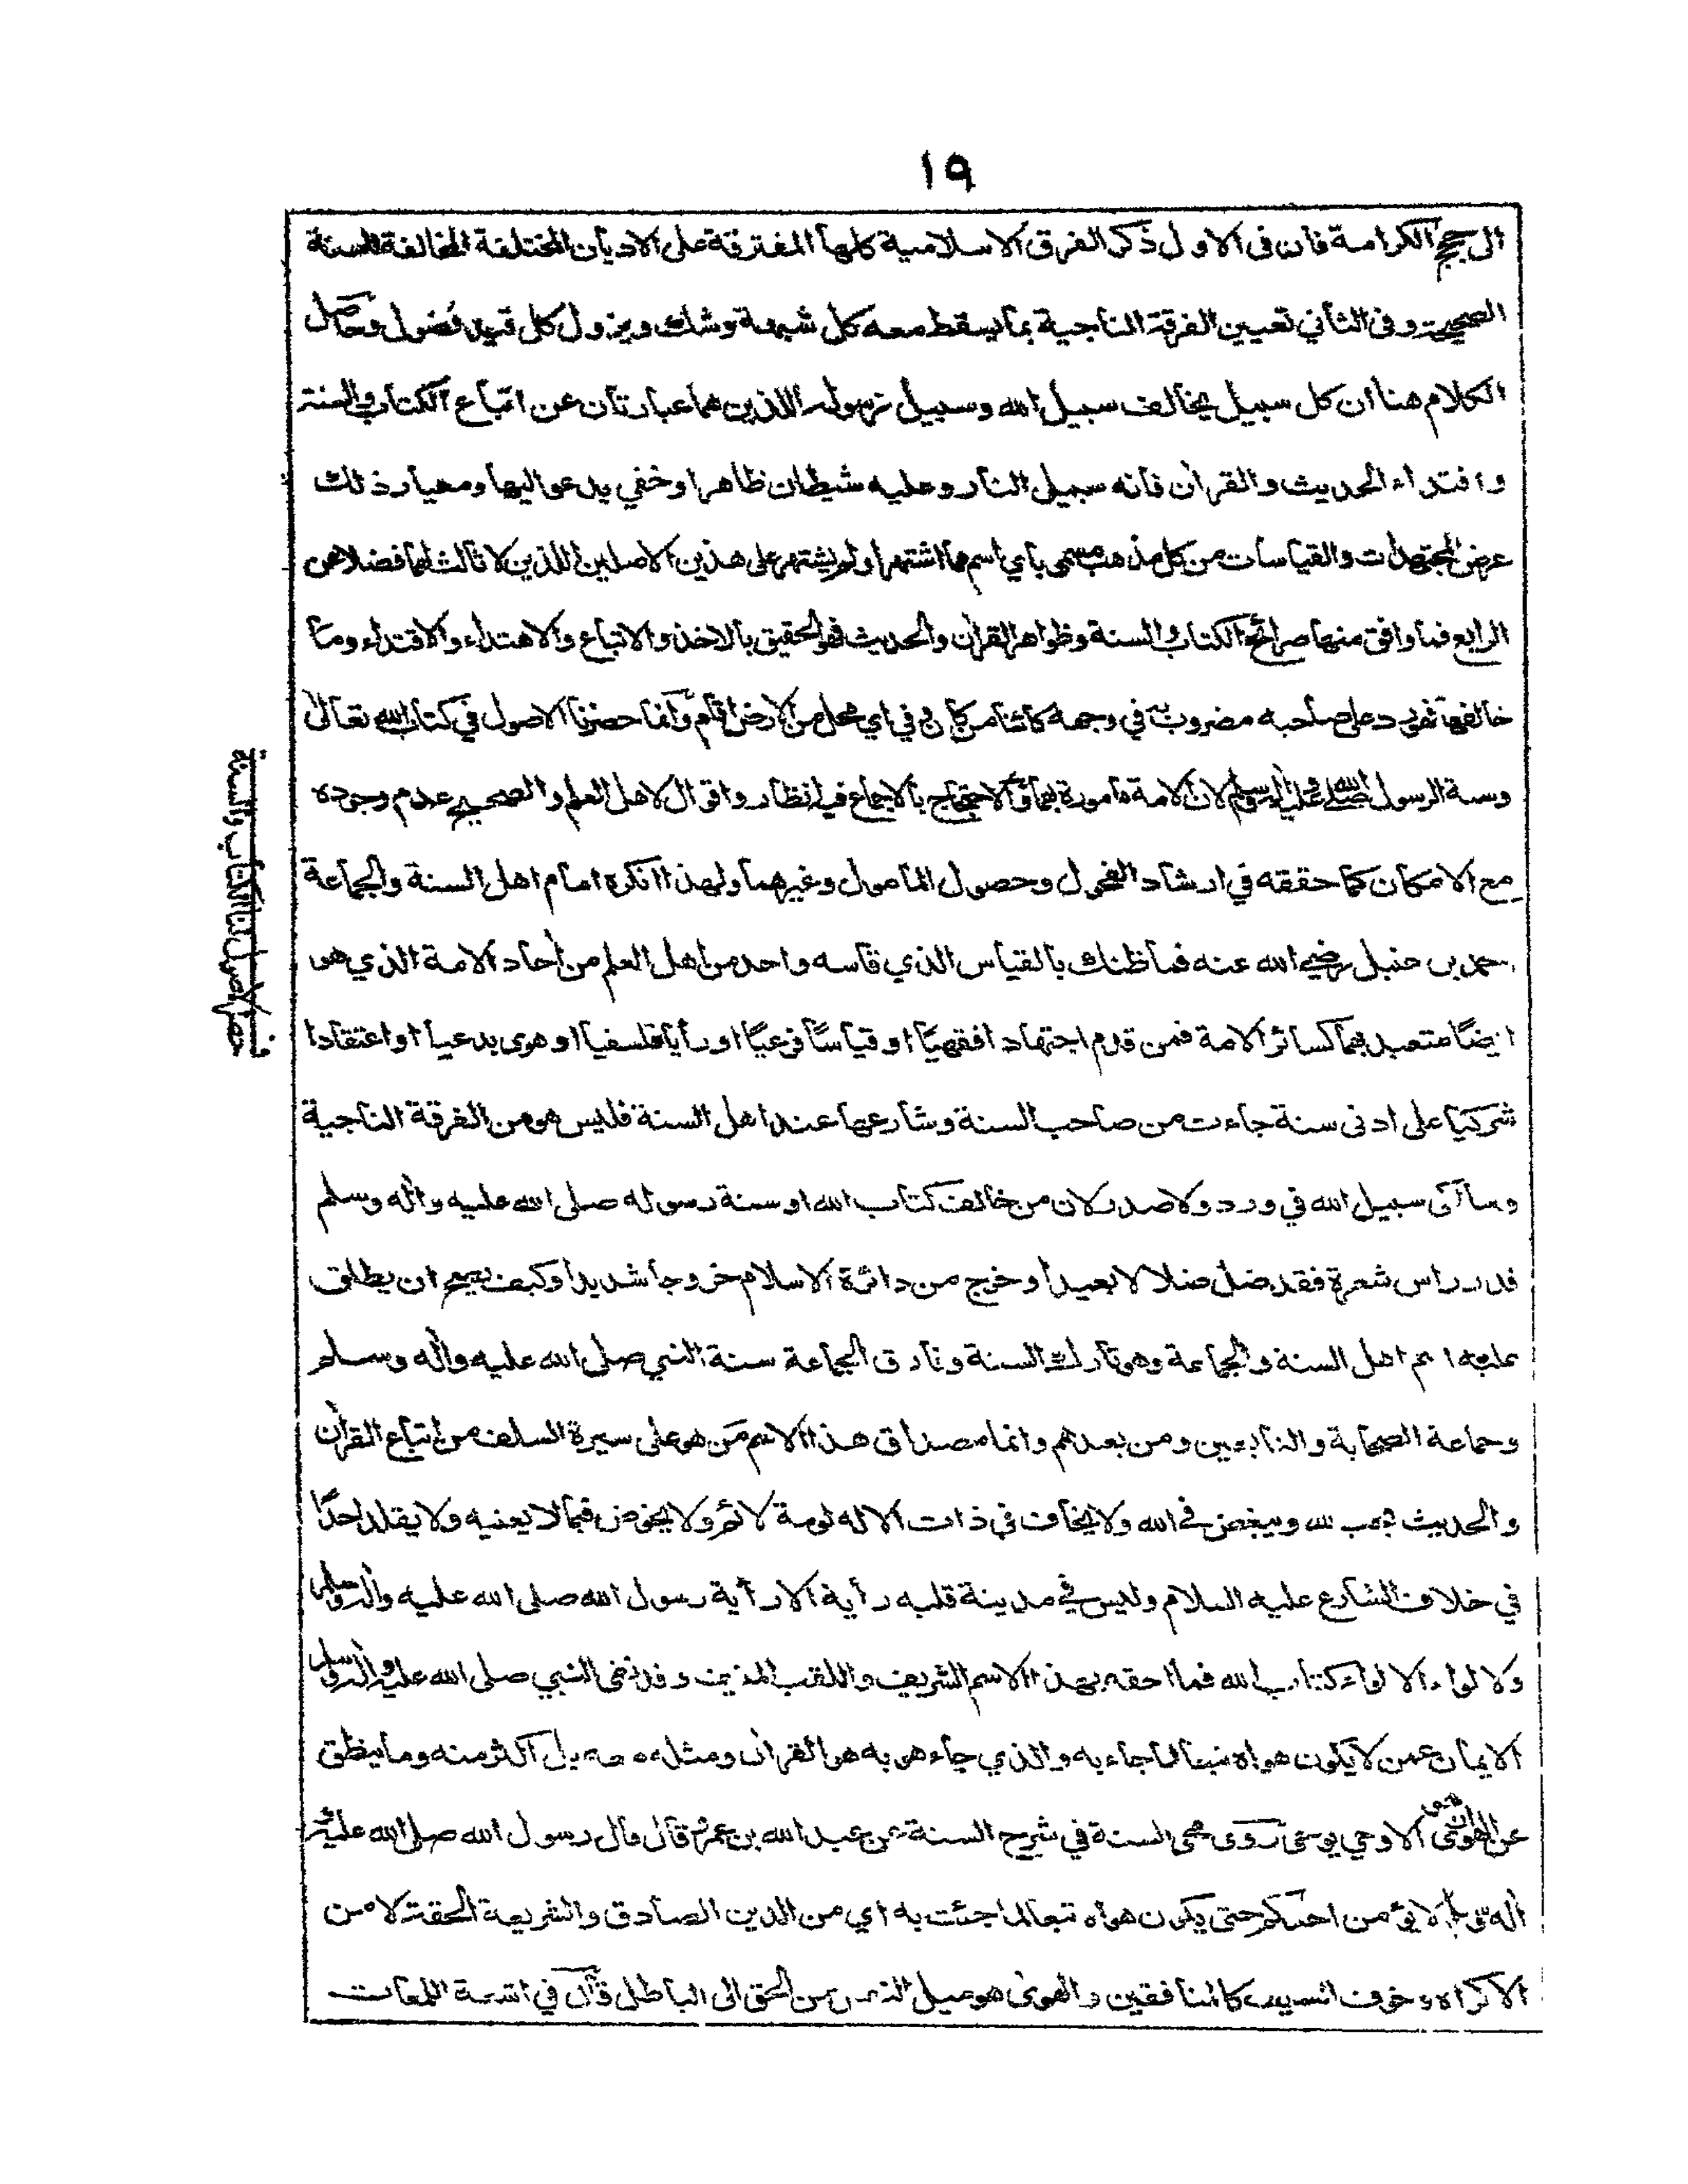 ١٩
الى حجج الكرامة فان فى الاول ذكر الفرق الاسلامية كلها المفترقة على الاديان المختلفة المخالفة للسنة
الصحيحة وفى الثاني تعيين الفرقة الناجية بما يسقط معه كل شبهة وشك ويزول كل قيد فضول وحاصل
الكلام هنا ان كل سبيل يخالف سبيل الله وسبيل رسوله اللذين هما عبارتان عن اتباع الكتاب والسنة
واقتداء الحديث والقران فانه سبيل النار وعليه شيطان ظاهر او خفي يدعو اليها ومعيار ذلك
عرض المجتهدات والقياسات من كل مذهب مسمى باي اسم مما اشتهر او لم يشتهر على هذين الاصلين اللذين لا ثالث لهما فضلا عن
الرابع فما وافق منها صرائح الكتاب والسنة وظواهر القران والحديث فهو الحقيق بالاخذ والاتباع والاهتداء والاقتداء وما
خالفها فهو رد على صاحبه مضروب به في وجهه كائنا من كان في اي محل من الارض اقام وانما حضرنا الاصول في كتاب الله تعالى
وسنة الرسول صلى الله عليه وسلم لان الامة مأمورة بهما والاحتجاج بالاجماع فيه انظار واقوال لاهل العلم والصحيح عدم وجوده
مع الامكان كما حققه في ارشاد الفحول وحصول المامول وغيرهما ولهذا انكره امام اهل السنة والجماعة
احمد بن حنبل رضي الله عنه فما ظنك بالقياس الذي قاسه واحد من اهل العلم من أحاد الامة الذي هو
ايضًا متعبد بهما كسائر الامة فمن قدم اجتهادا فقهيًا او قياسًا فرعيًا او رأيا فلسفيا او هوى بدعيا او اعتقادا
شركيا على ادنى سنة جاءت من صاحب السنة وشارعها عند اهل السنة فليس هو من الفرقة الناجية
وسالكى سبيل الله في ورد ولا صدر لان من خالف كتاب الله او سنة رسوله صلى الله عليه واله وسلم
قدر راس شعرة فقد ضل ضلالا بعيدا وخرج من دائرة الاسلام خروجا شديدا وكيف يصح ان يطلق
عليه اسم اهل السنة والجماعة وهو تارك السنة وفارق الجماعة سنة النبي صلى الله عليه واله وسلم
وجماعة الصحابة والتابعين ومن بعدهم وانما مصداق هذا الاسم من هو على سيرة السلف من اتباع القران
والحديث يحب لله ويبغض في الله ولا يخاف في ذات الاله لومة لائم ولا يخوض فيما لا يعنيه ولا يقلد احدًا
في خلاف الشارع عليه السلام وليس في مدينة قلبه رأية الا رأية رسول الله صلى الله عليه واله وسلم
ولا لواء الا لواء كتاب الله فما احقه بهذا الاسم الشريف واللقب المنيف وقد نفى النبي صلى الله عليه واله وسلم
الايمان عمن لا يكون هواه تبعا لما جاء به والذي جاء هو به هو القران ومثله معه بل اكثر منه وما ينطق
عن الهوى ان هو الا وحي يوحى روى محي السنة في شرح السنة عن عبد الله بن عمرو قال قال رسول الله صلى الله عليه و
اله وسلم لا يؤمن احدكم حتى يكون هواه تبعا لما جئت به اي من الدين الصادق والشريعة الحقة لا من
الاكراه وخوف السيف كالمنافقين والهوى هو ميل النفس من الحق الى الباطل قال في اشعة اللمعات
حصر الاصول في الكتاب والسنة